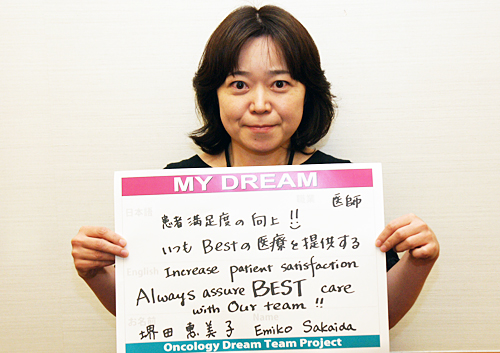 MY DREAM
日本語
医師
患者満足度の向上!!
いつもBestの医療を提供する
English
Increase patient satisfaction
Always assure BEST care
with Our team!!
お名前
Name
堺田 恵美子 Emiko Sakaida
Oncology Dream Team Project